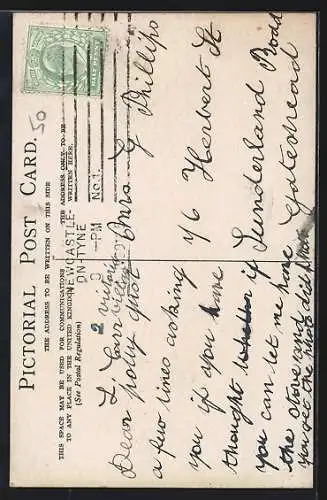 PICTORIAL POST CARD.
THE ADDRESS TO BE WRITTEN ON THIS SIDE
THIS SPACE MAY BE USED FOR COMMUNICATIONS
TO ANY PLACE IN THE UNITED KINGDOM
(See Postal Regulation)
THE ADDRESS ONLY TO BE
WRITTEN HERE.
HALF PENNY
50
NEWCASTLE-
ON-TYNE
PM
No 1.
Mrs G Phillips
46 Herbert St
Sunderland Road
Gateshead
2
L.
Dear Polly Just
a few lines asking
you if you have
thought if
you can let me have
the stove and
you see the did